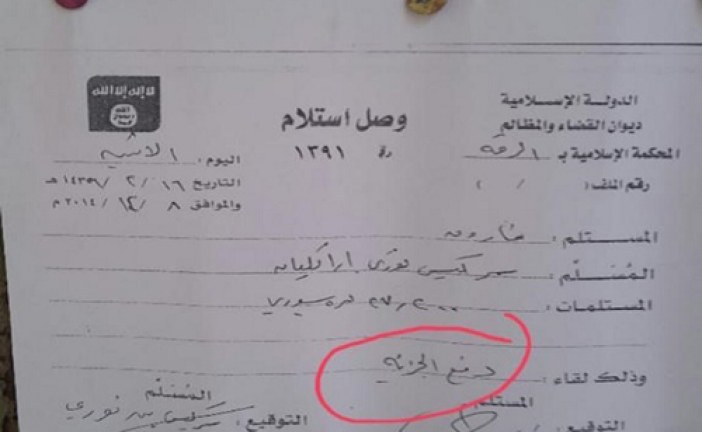 لا إله إلا الله
الله
رسول
محمد
الدولة الإسلامية
ديوان القضاء والمظالم
المحكمة الإسلامية بـ الرقة
رقم الملف: ( / )
وصل استلام
١٣٩١
اليوم: الاثنين
التاريخ ١٦ / ٢ / ١٤٣٦ هـ
والموافق ٨ / ١٢ / ٢٠١٤ م
المستلم: فاروق
المُسَلِّم: سركيس نوري اراكليان
المستلمات: ٢٧٫٢٠٠ ل.س سوري
وذلك لقاء: دفع الجزية
المستلم
المُسَلِّم
التوقيع:
التوقيع: سركيس نوري